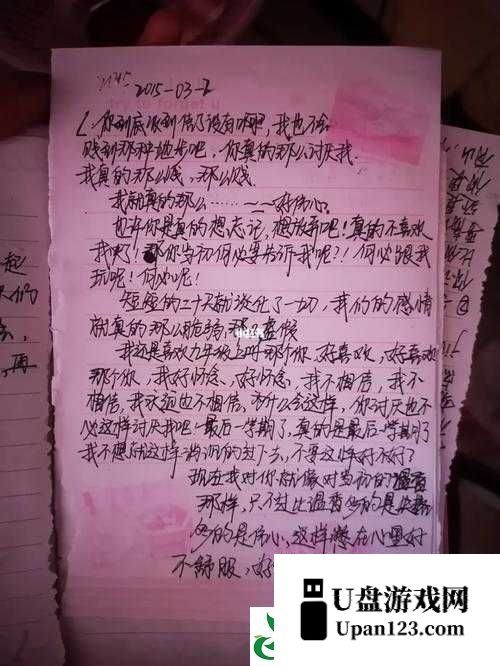 2015-03-2
try to forget u
你到底收到信了没有啊,我也不会
贱到那种地步吧,你真的那么讨厌我
我真的那么贱,那么贱.
我就真的那么……好伤心.
也许你是真的想忘记,想放弃吧!真的不喜欢
我啊!那你当初何必要告诉我呢?!何必跟我
玩呢!何必呢!
短短的二十天就淡化了一切,我们的感情
就真的那么脆弱,那么虚假
我还是喜欢九年级上册那个你,好喜欢,好喜欢
那个你,我好怀念,好怀念,我不相信,我不
相信,我永远也不相信,为什么会这样,你讨厌也不
必这样讨厌我吧!最后一学期了,真的是最后一学期了
我不想就这样的过下去,不要这样好不好了
现在我对你就像对当初的
那样,只不过比多的是
多的是伤心,这样憋在心里好
不舒服,好
起
们
,再
U盘游戏网
Upan123.com